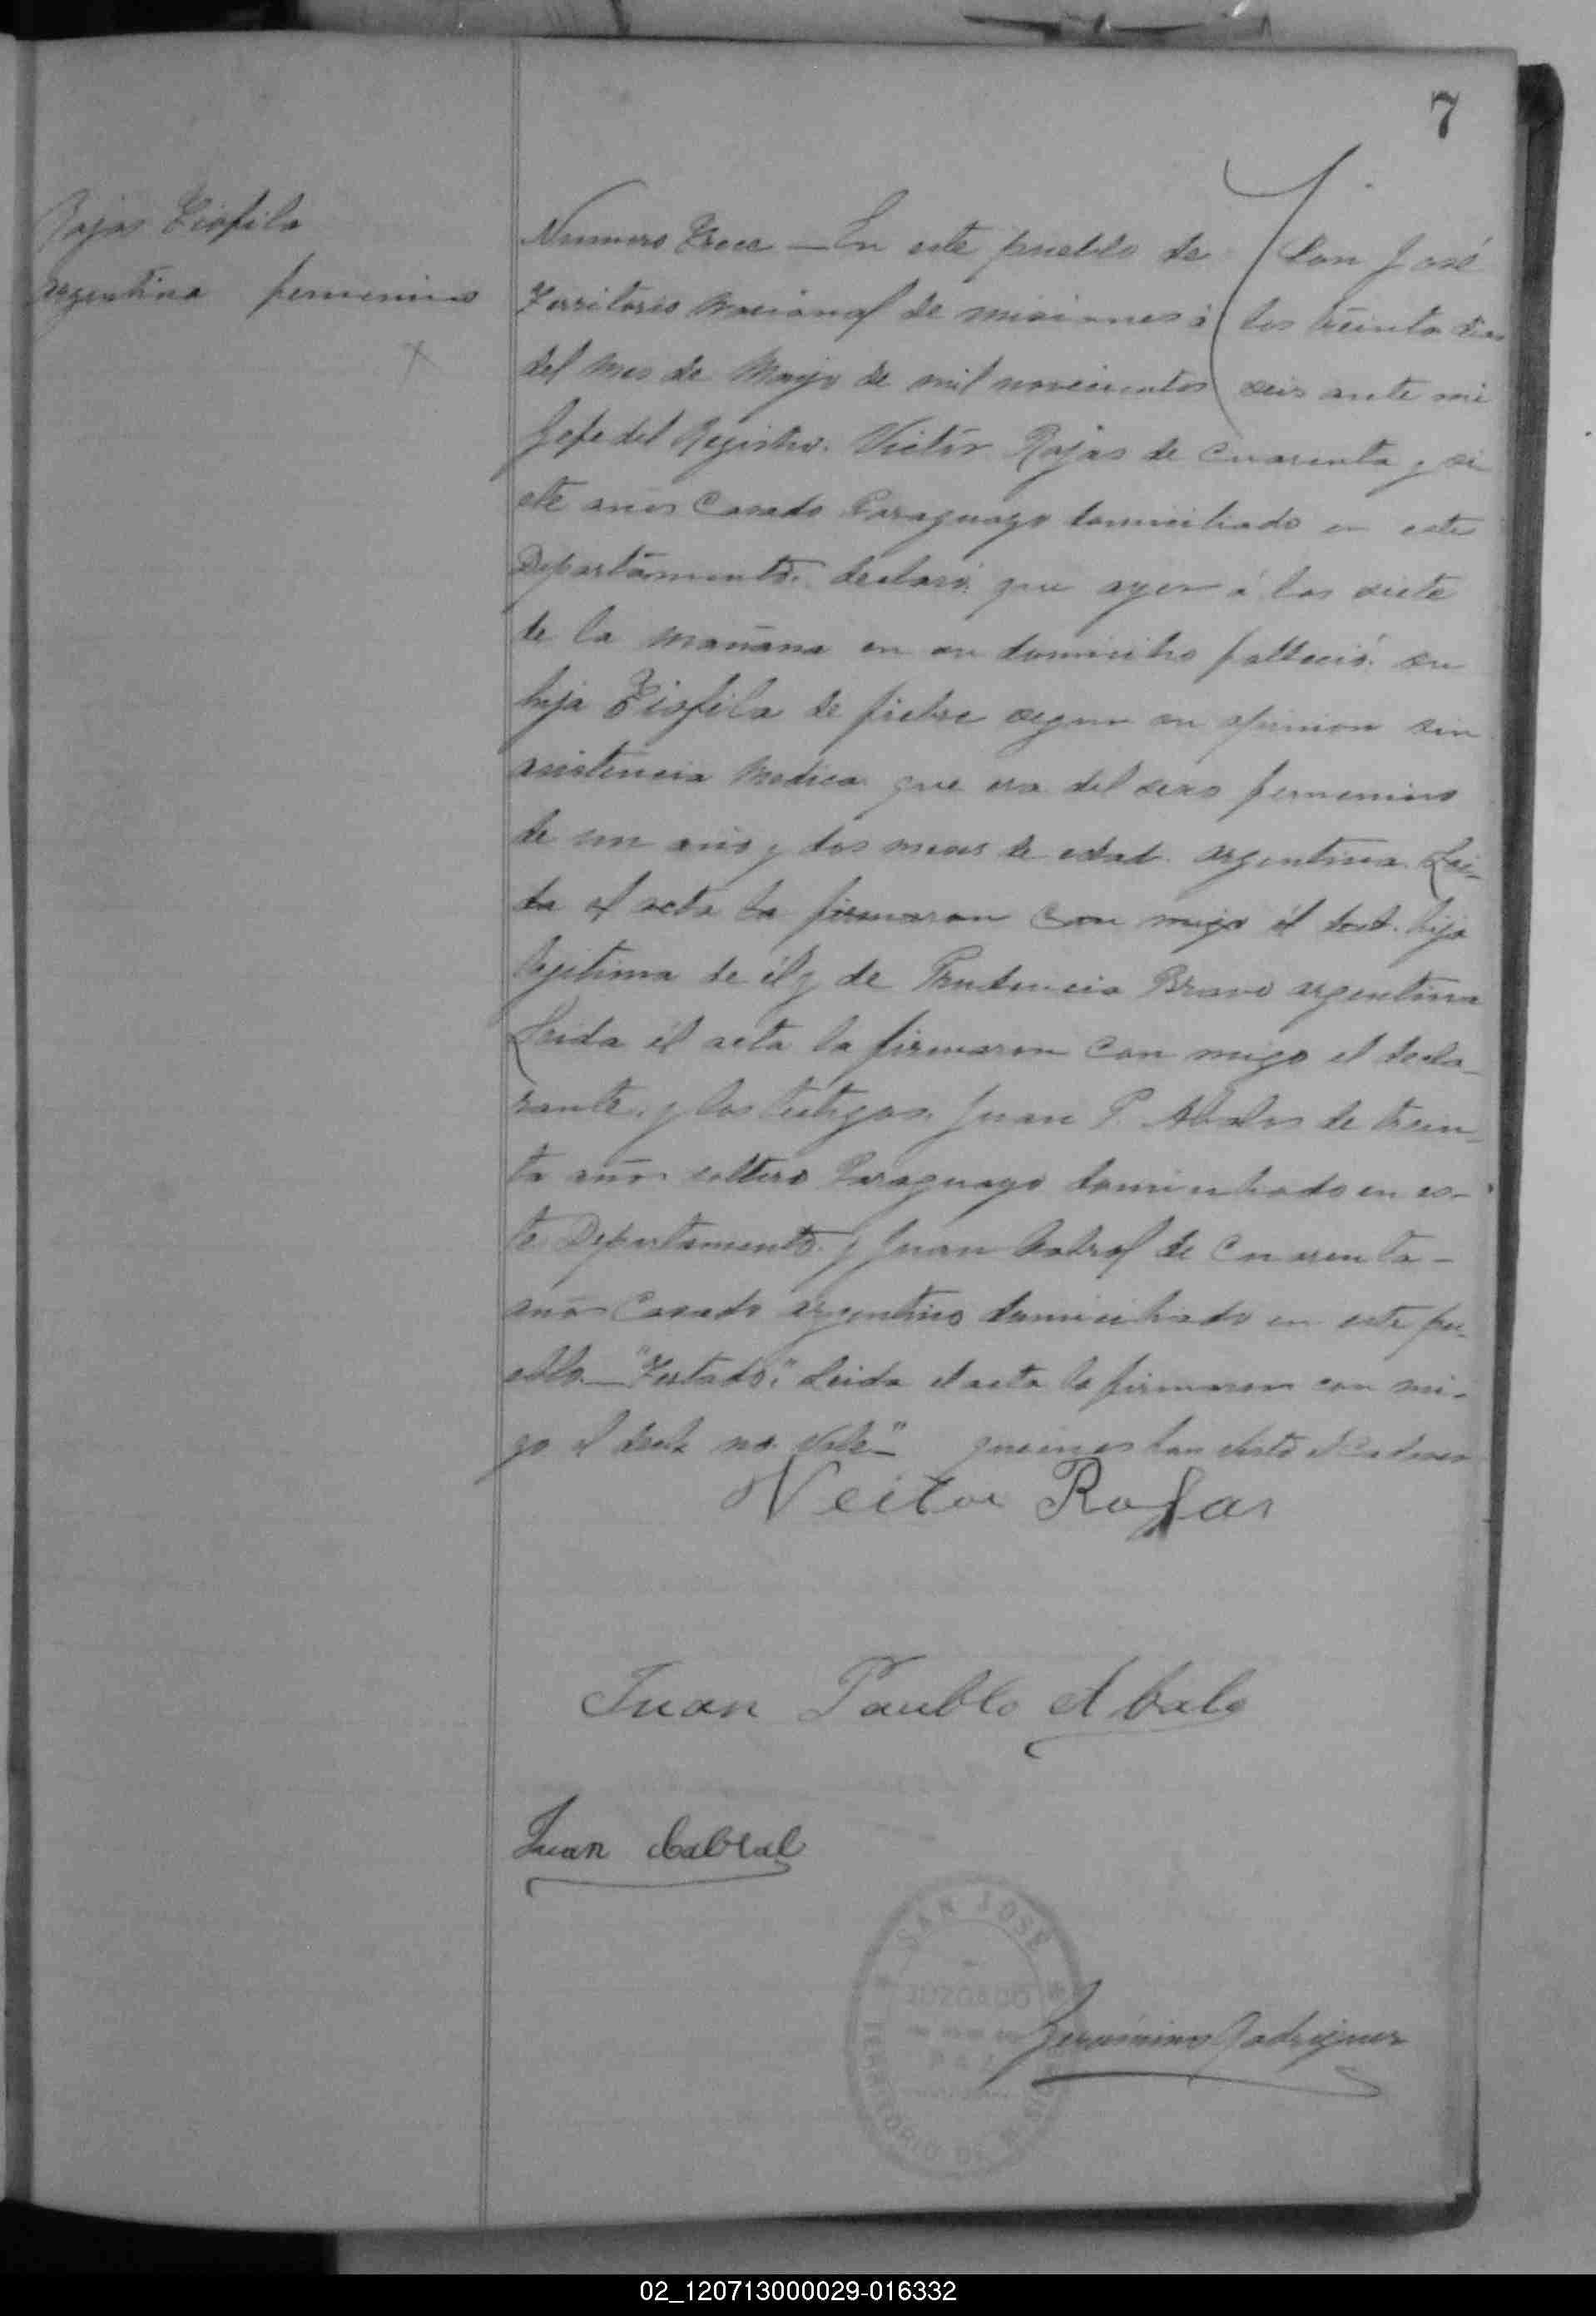 7
Rojas Tiofila
argentina femenino
Numero Trece — En este pueblo de San José
Territorio Nacional de misiones á los treinta dias
del mes de Mayo de mil novecientos seis ante mi
Jefe del Registro. Victór Rojas de cuarenta y si
ete años Casado Paraguayo domiciliado en este
Departamento. declaró: que ayer á las siete
de la mañana en su domicilio falleció su
hija Tiofila de fiebre segun su opinion sin
asistencia Medica que era del sexo femenino
de un año y dos meses de edad. argentina. Lei-
da el acta la firmaron con migo él decl. hija
legitima de él y de Prudencia Bravo argentina
Leida él acta la firmaron con migo el decla-
rante, y los testigos. Juan P. Abalos de trein-
ta años soltero Paraguayo domiciliado en es-
te Departamento. y Juan Cabral de Cuarenta -
años Casado argentino domiciliado en este pu-
eblo. — "Testado." Leida el acta la firmaron con mi-
go el decl. no. Vale" — quienes han visto el Cadaver
Veitor Rojas
Juan Paublo Abalo
Juan Cabral
SAN JOSÉ
JUZGADO
DE
PAZ
TERRITORIO DE MISIONES
Geronimo Rodriguez
02_120713000029-016332